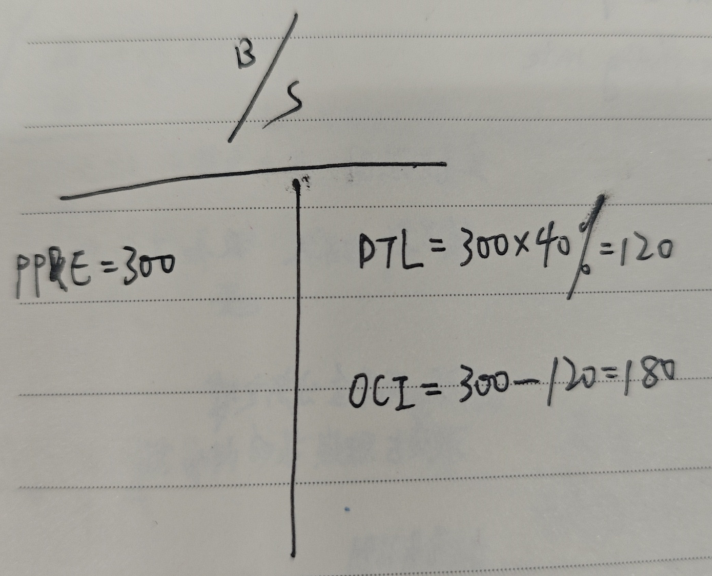 B/S
PP&E=300
DTL=300×40%=120
OCI=300-120=180